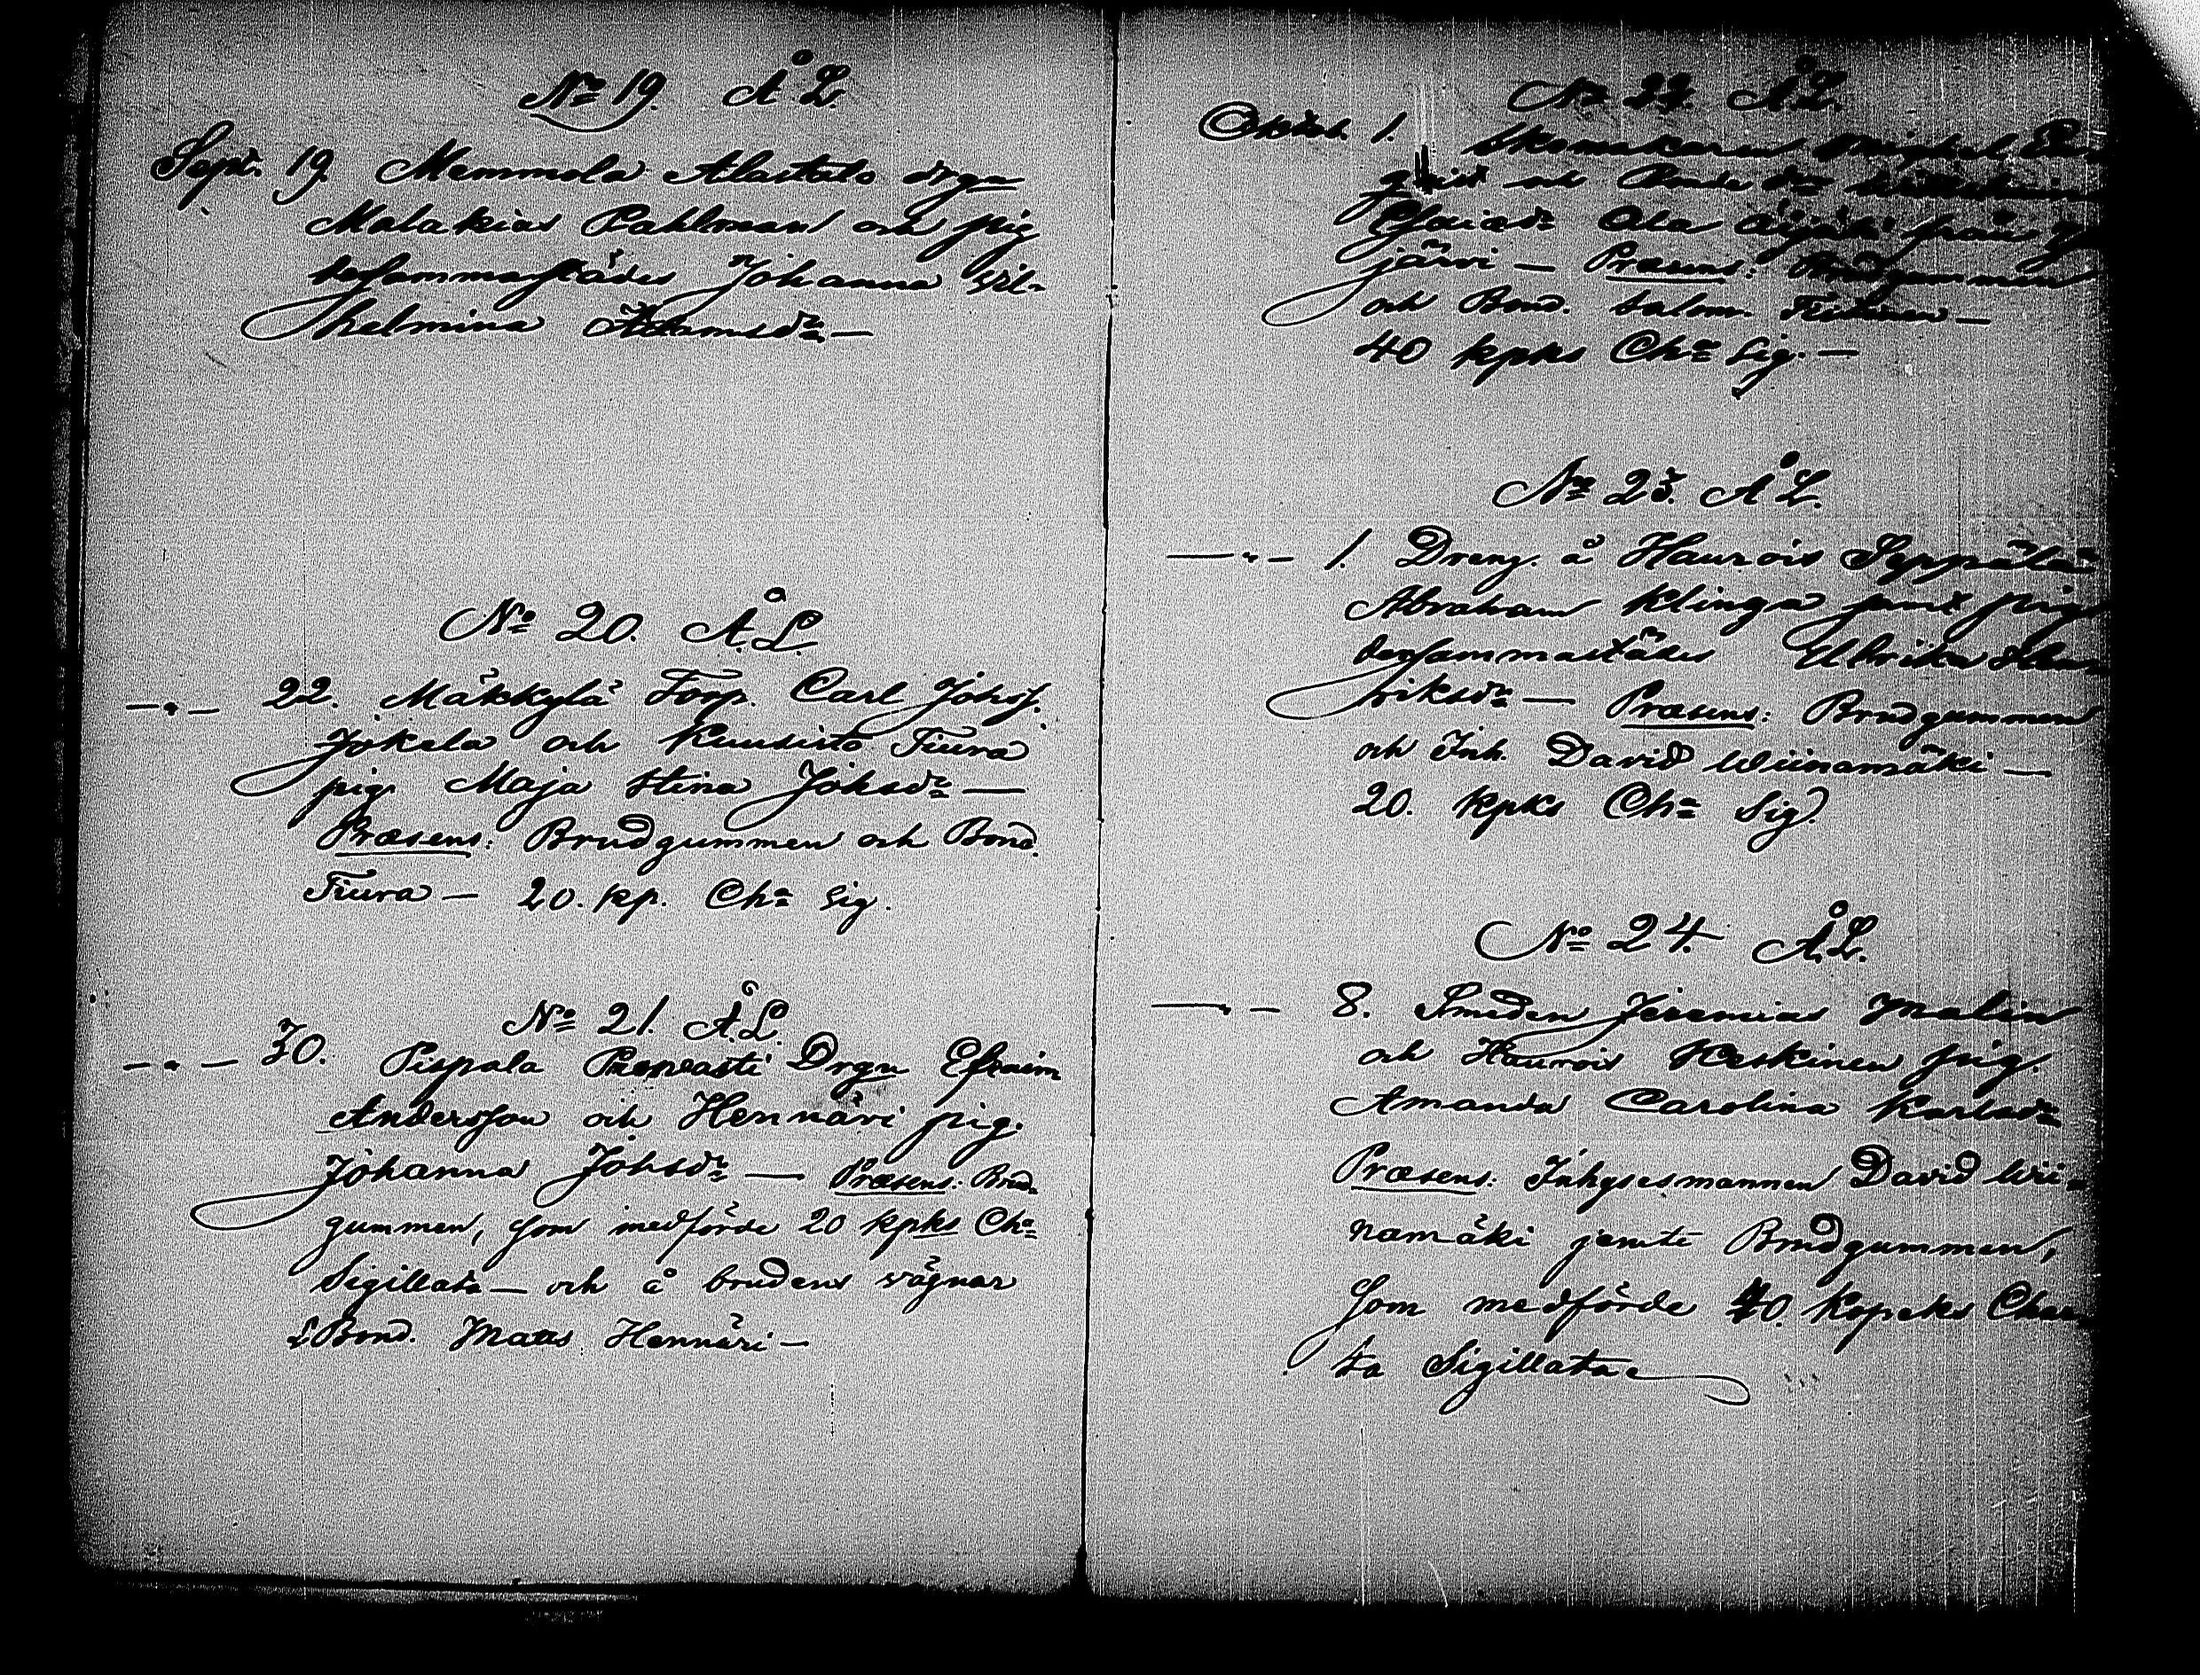 No 19. Å. L.
Sept. 19. Memmola Alastalo drgn
Malakias Pahlman och pig
dersammastädes Johanna Wil-
helmina Adamsdr —
No 20. Å. L.
—〃— 22. Mäkkylä Torp. Carl Johss.
Jokela och Kuusisto Tiura
pig. Maja Stina Johsdr —
Præsens: Brudgummen och Bond.
Tiura — 20. kp. Cha Sig.
No 21. Å. L.
—〃— 30. Pispala Prepasti Drgn Efraim
Andersson och Hennäri pig.
Johanna Johsdr — Præsens: Brud-
gummen, som medförde 20 kpks Cha
Sigillata — och å brudens vägnar
Bond. Matts Hennäri —
No 22. Å. L.
Oktob. 1. Skomakaren
och
Ala från
järvi — Præsens: Brudgummen
och Bond. Salom.
40 kpks Cha Sig. —
No 23. Å. L.
—〃— 1. Dreng. å Haurois Seppälä
Abraham Klinga samt pig.
dersammastädes Ulrika Hen-
riksdr — Præsens: Brudgummen
och Inh. David Wiinamäki —
20. kpks Cha Sig.
No 24. Å. L.
—〃— 8. Smeden Jeremias Malin
och Haurois Keskinen pig.
Amanda Carolina Karlsdr
Præsens: Inhysesmannen David Wii-
namäki jemte Brudgummen,
som medförde 40. Kopeks Char-
ta Sigillata